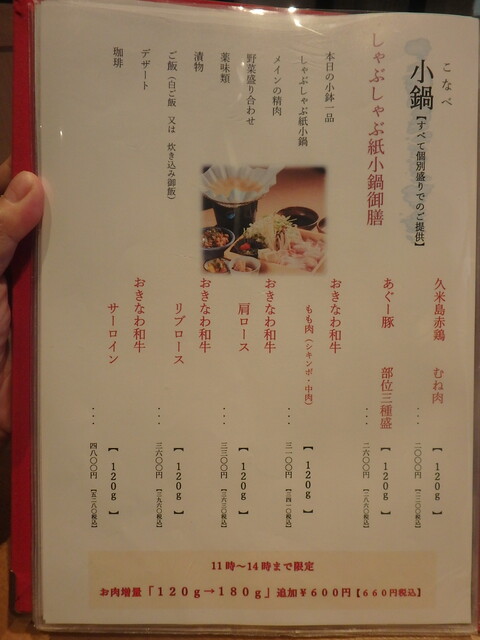 こなべ
小鍋【すべて個別盛りでのご提供】
しゃぶしゃぶ紙小鍋御膳
本日の小鉢一品
しゃぶしゃぶ紙小鍋
メインの精肉
野菜盛り合わせ
薬味類
漬物
ご飯（白ご飯 又は 炊き込み御飯）
デザート
珈琲
久米島赤鶏 むね肉
【120g】
...二〇〇〇円【二二〇〇税込】
あぐー豚 部位三種盛
【120g】
...二六〇〇円【二八六〇税込】
おきなわ和牛
もも肉（シキンボ・中肉）
【120g】
...三一〇〇円【三四一〇税込】
おきなわ和牛
肩ロース
【120g】
...三三〇〇円【三六三〇税込】
おきなわ和牛
リブロース
【120g】
...三六〇〇円【三九六〇税込】
おきなわ和牛
サーロイン
【120g】
...四八〇〇円【五二八〇税込】
11時～14時まで限定
お肉増量「120g→180g」追加¥600円【660円税込】